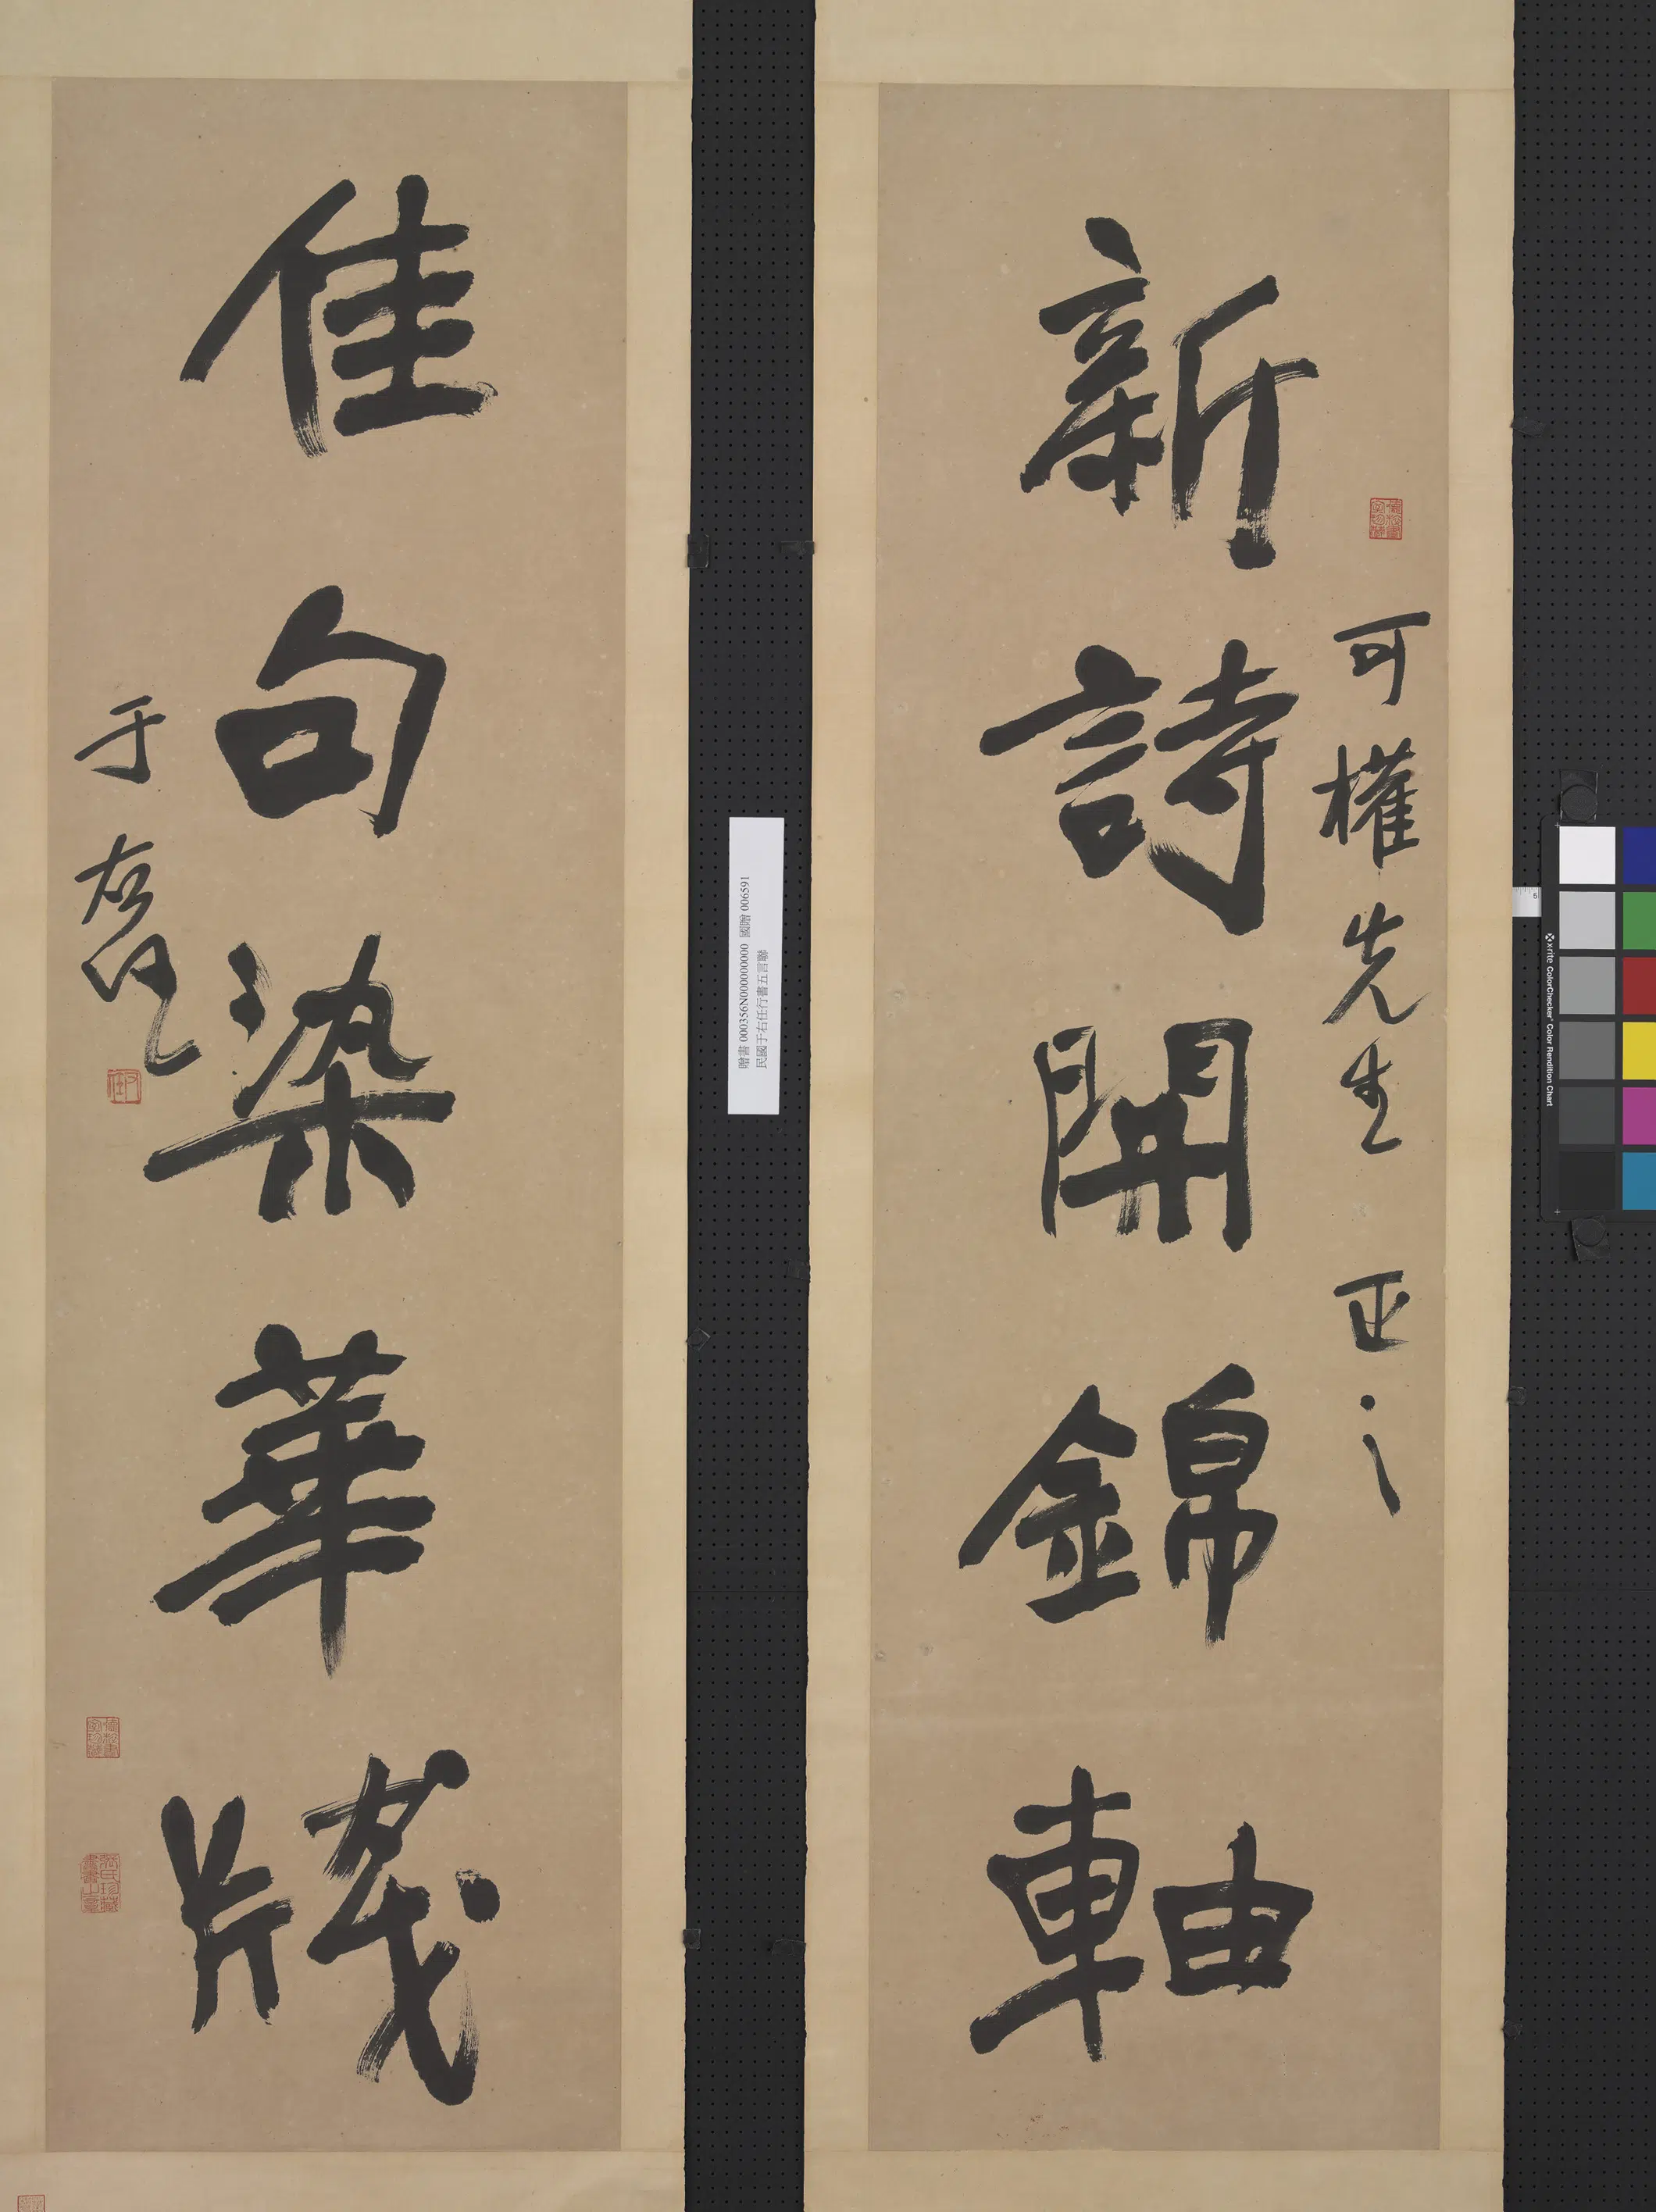 新詩開錦軸
可權先生 正之
佳句染華牋
于右任
贈書 000356N000000000 國贈 006591
民國于右任行書五言聯
x-rite ColorChecker Color Rendition Chart